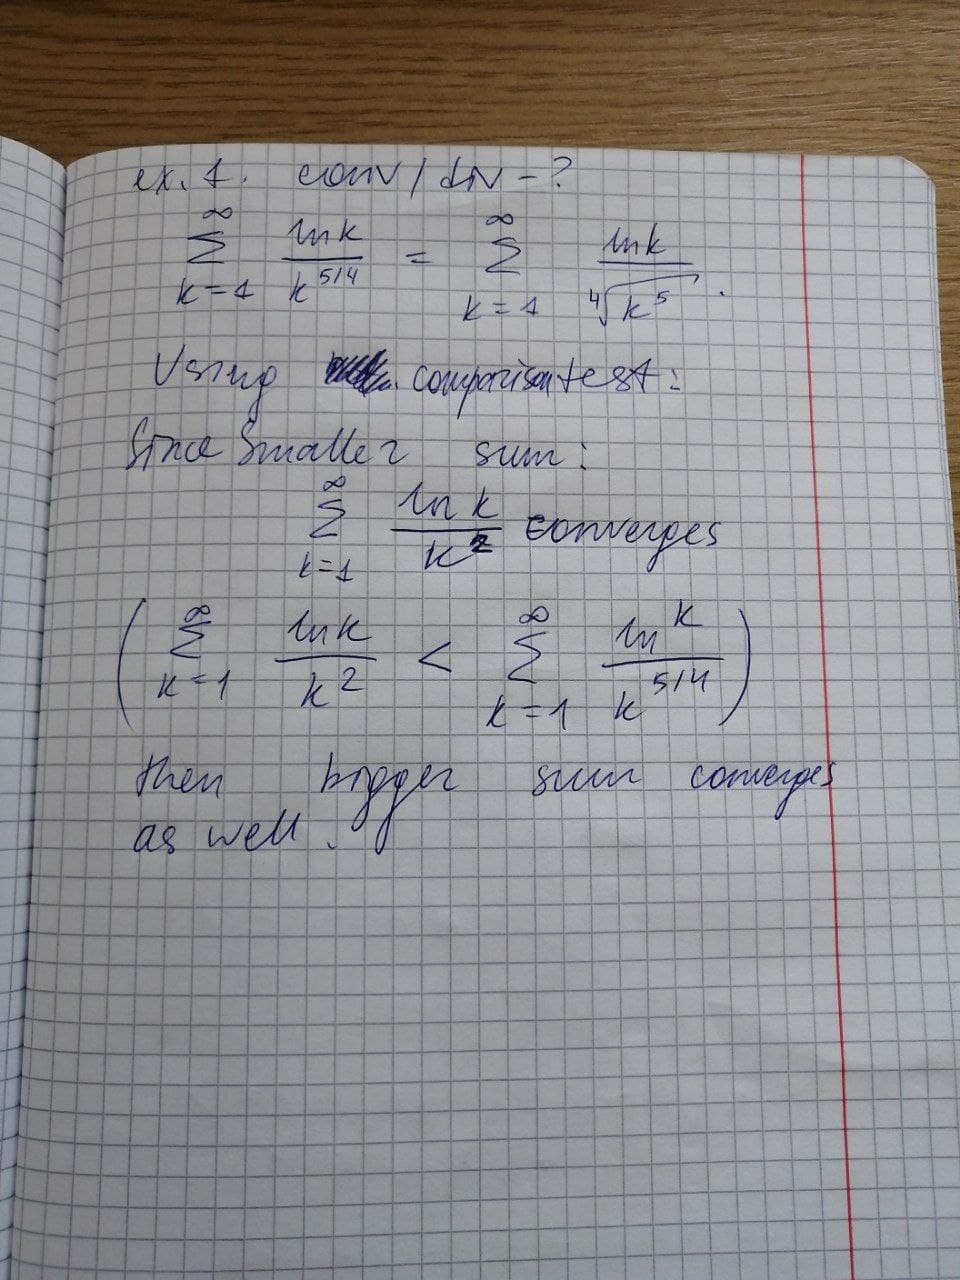 ex. 1. conv / div - ?
∞ ∑ k=1 ln k / k^5/4 = ∞ ∑ k=1 ln k / ∜k^5 .
Using comparison test:
Since smaller sum:
∞ ∑ k=1 ln k / k^2 converges
( ∞ ∑ k=1 ln k / k^2 < ∞ ∑ k=1 ln k / k^5/4 )
then bigger sum converges
as well.